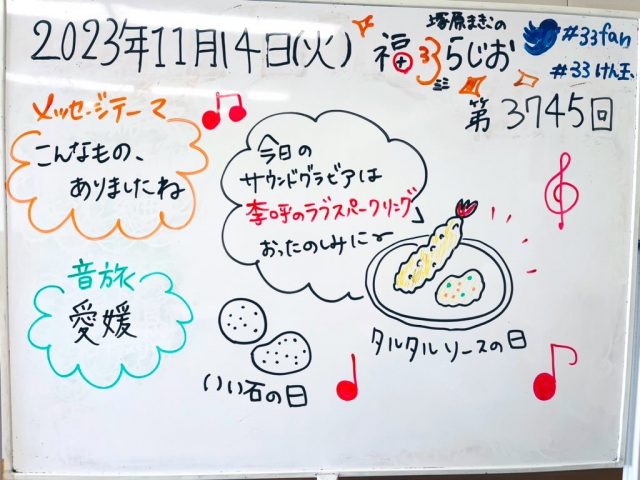 2023年11月14日(火)
塚原まきこの
福+33らじお
#33fan
#33けん玉
第3745回
メッセージテーマ
こんなもの、
ありましたね
今日の
サウンドグラビアは
李呼のラブスパークリング
おったのしみに〜
音旅
愛媛
いい石の日
タルタルソースの日